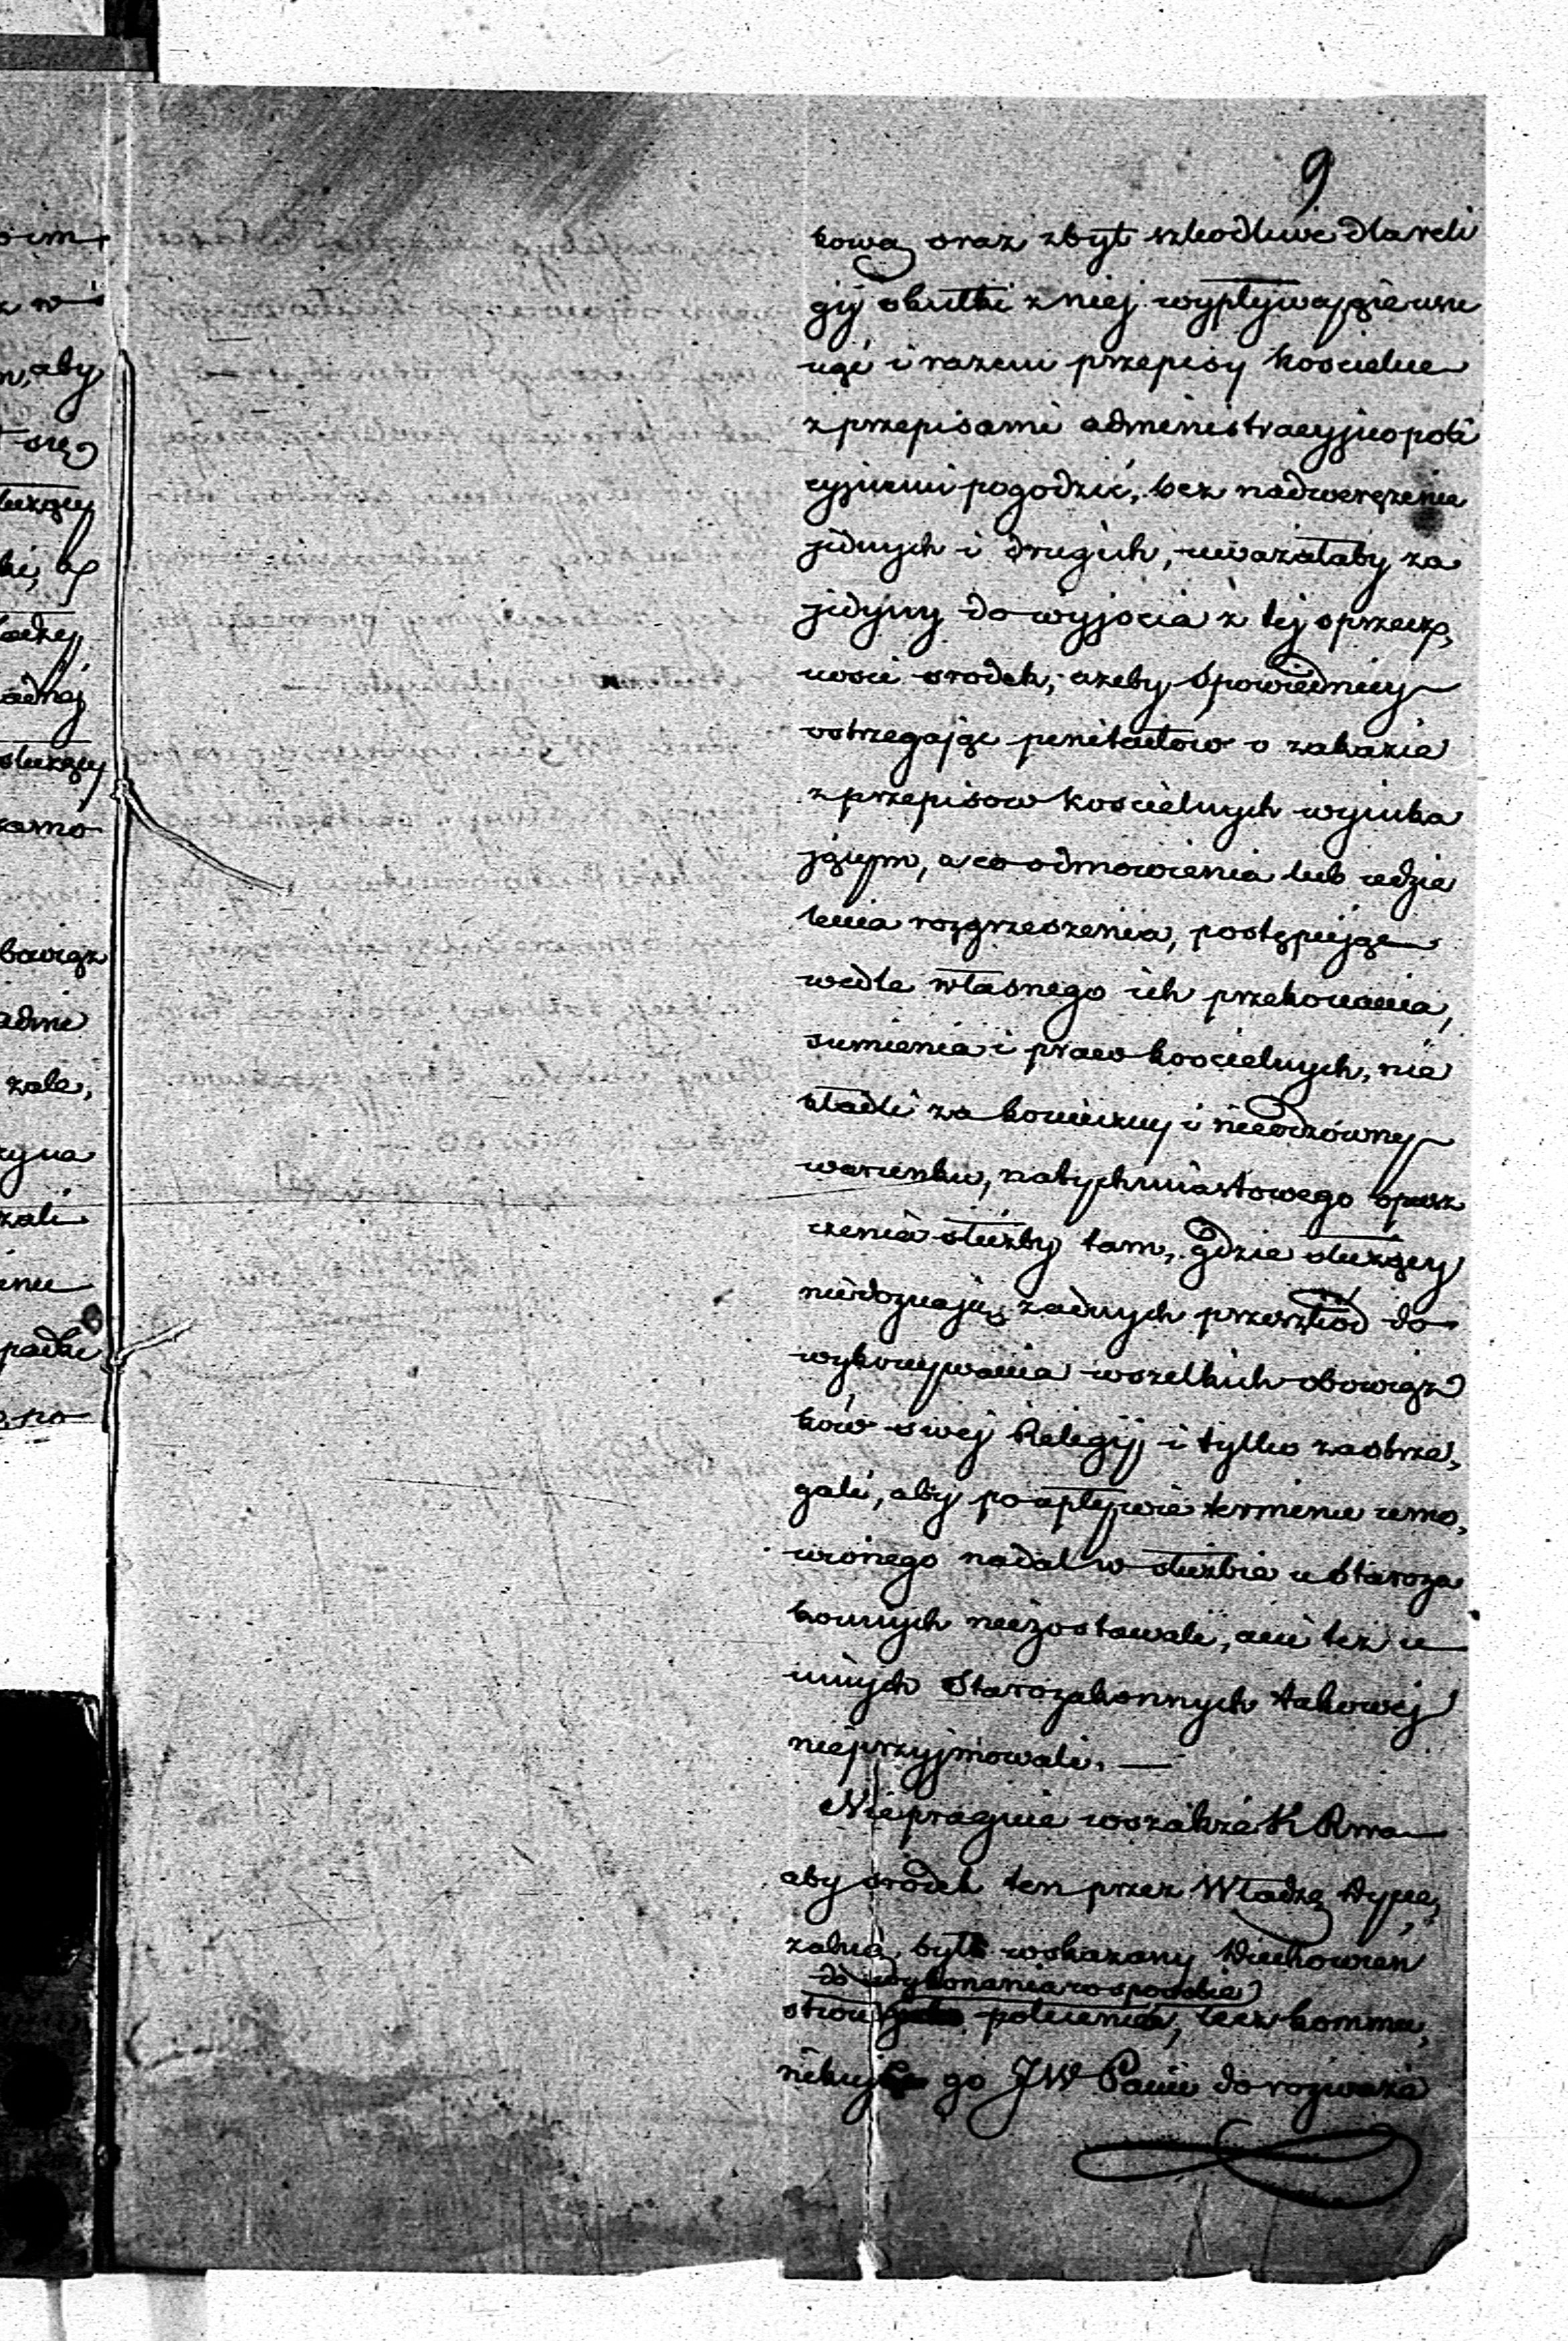 9
kową oraz zbyt szkodliwe dla reli
gij skutki z niej wypływające usu
nąć i razem przepisy kościelne
z przepisami administracyjno poli
cyjnemi pogodzić, bez nadwerężenia
jednych i drugich, uważałaby za
jedyny do wyjścia z tej sprzecz,
ności srodek, azeby Spowiednicy
ostrzegając penitentow o zakazie
z przepisow kościelnych wynika
jącym, a co do odmowienia lub udzie
lenia rozgrzeszenia, postępując
wedle własnego ich przekonania,
sumienia i praw kościelnych, nie
kładli za konieczny i nieodzowny
warunku, natychmiastowego opusz
czenia służby tam, gdzie służący
niedoznają żadnych przeszkod do
wykonywania wszelkich obowiąz
ków swej Religij i tylko zastrze,
gali, aby po upływie terminu umo,
wionego nadal w służbie u Staroza
konnych niezostawali, ani też u
innych Starozakonnych takowej
nieprzyjmowali. —
Niepragnie wszakże K Rma
aby srodek ten przez Władzę Dyece,
zalną był wskazany Duchowień
do wykonania w sposobie
stwu polecenia, lecz kommu,
nikuje go JW Panu do rozważa
oim
aby
się
służący
służący
samo
bowiąz
zale,
zali
padki
po